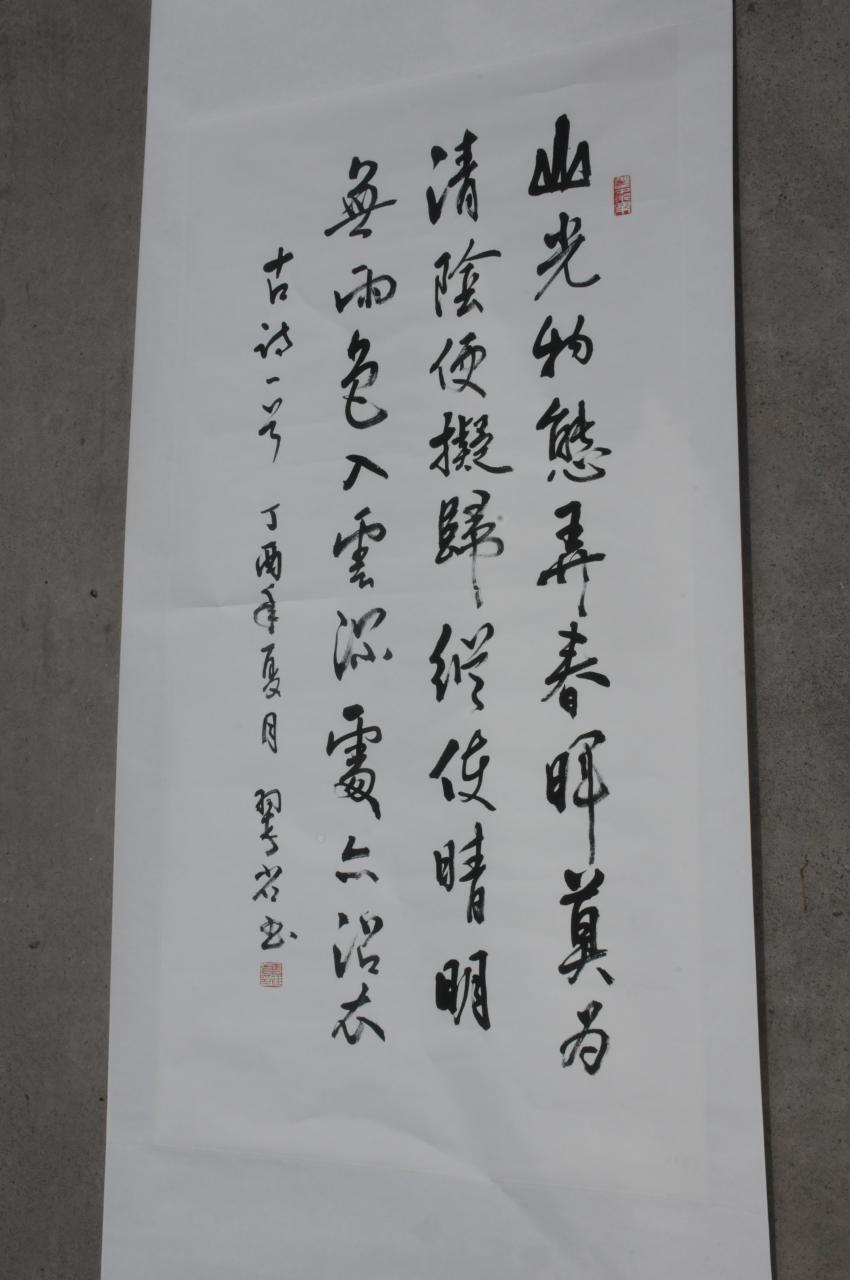 山光物態弄春暉莫为
清陰便擬歸縱使晴明
無雨色入雲深處亦沾衣
古诗一首 丁酉年夏月 书